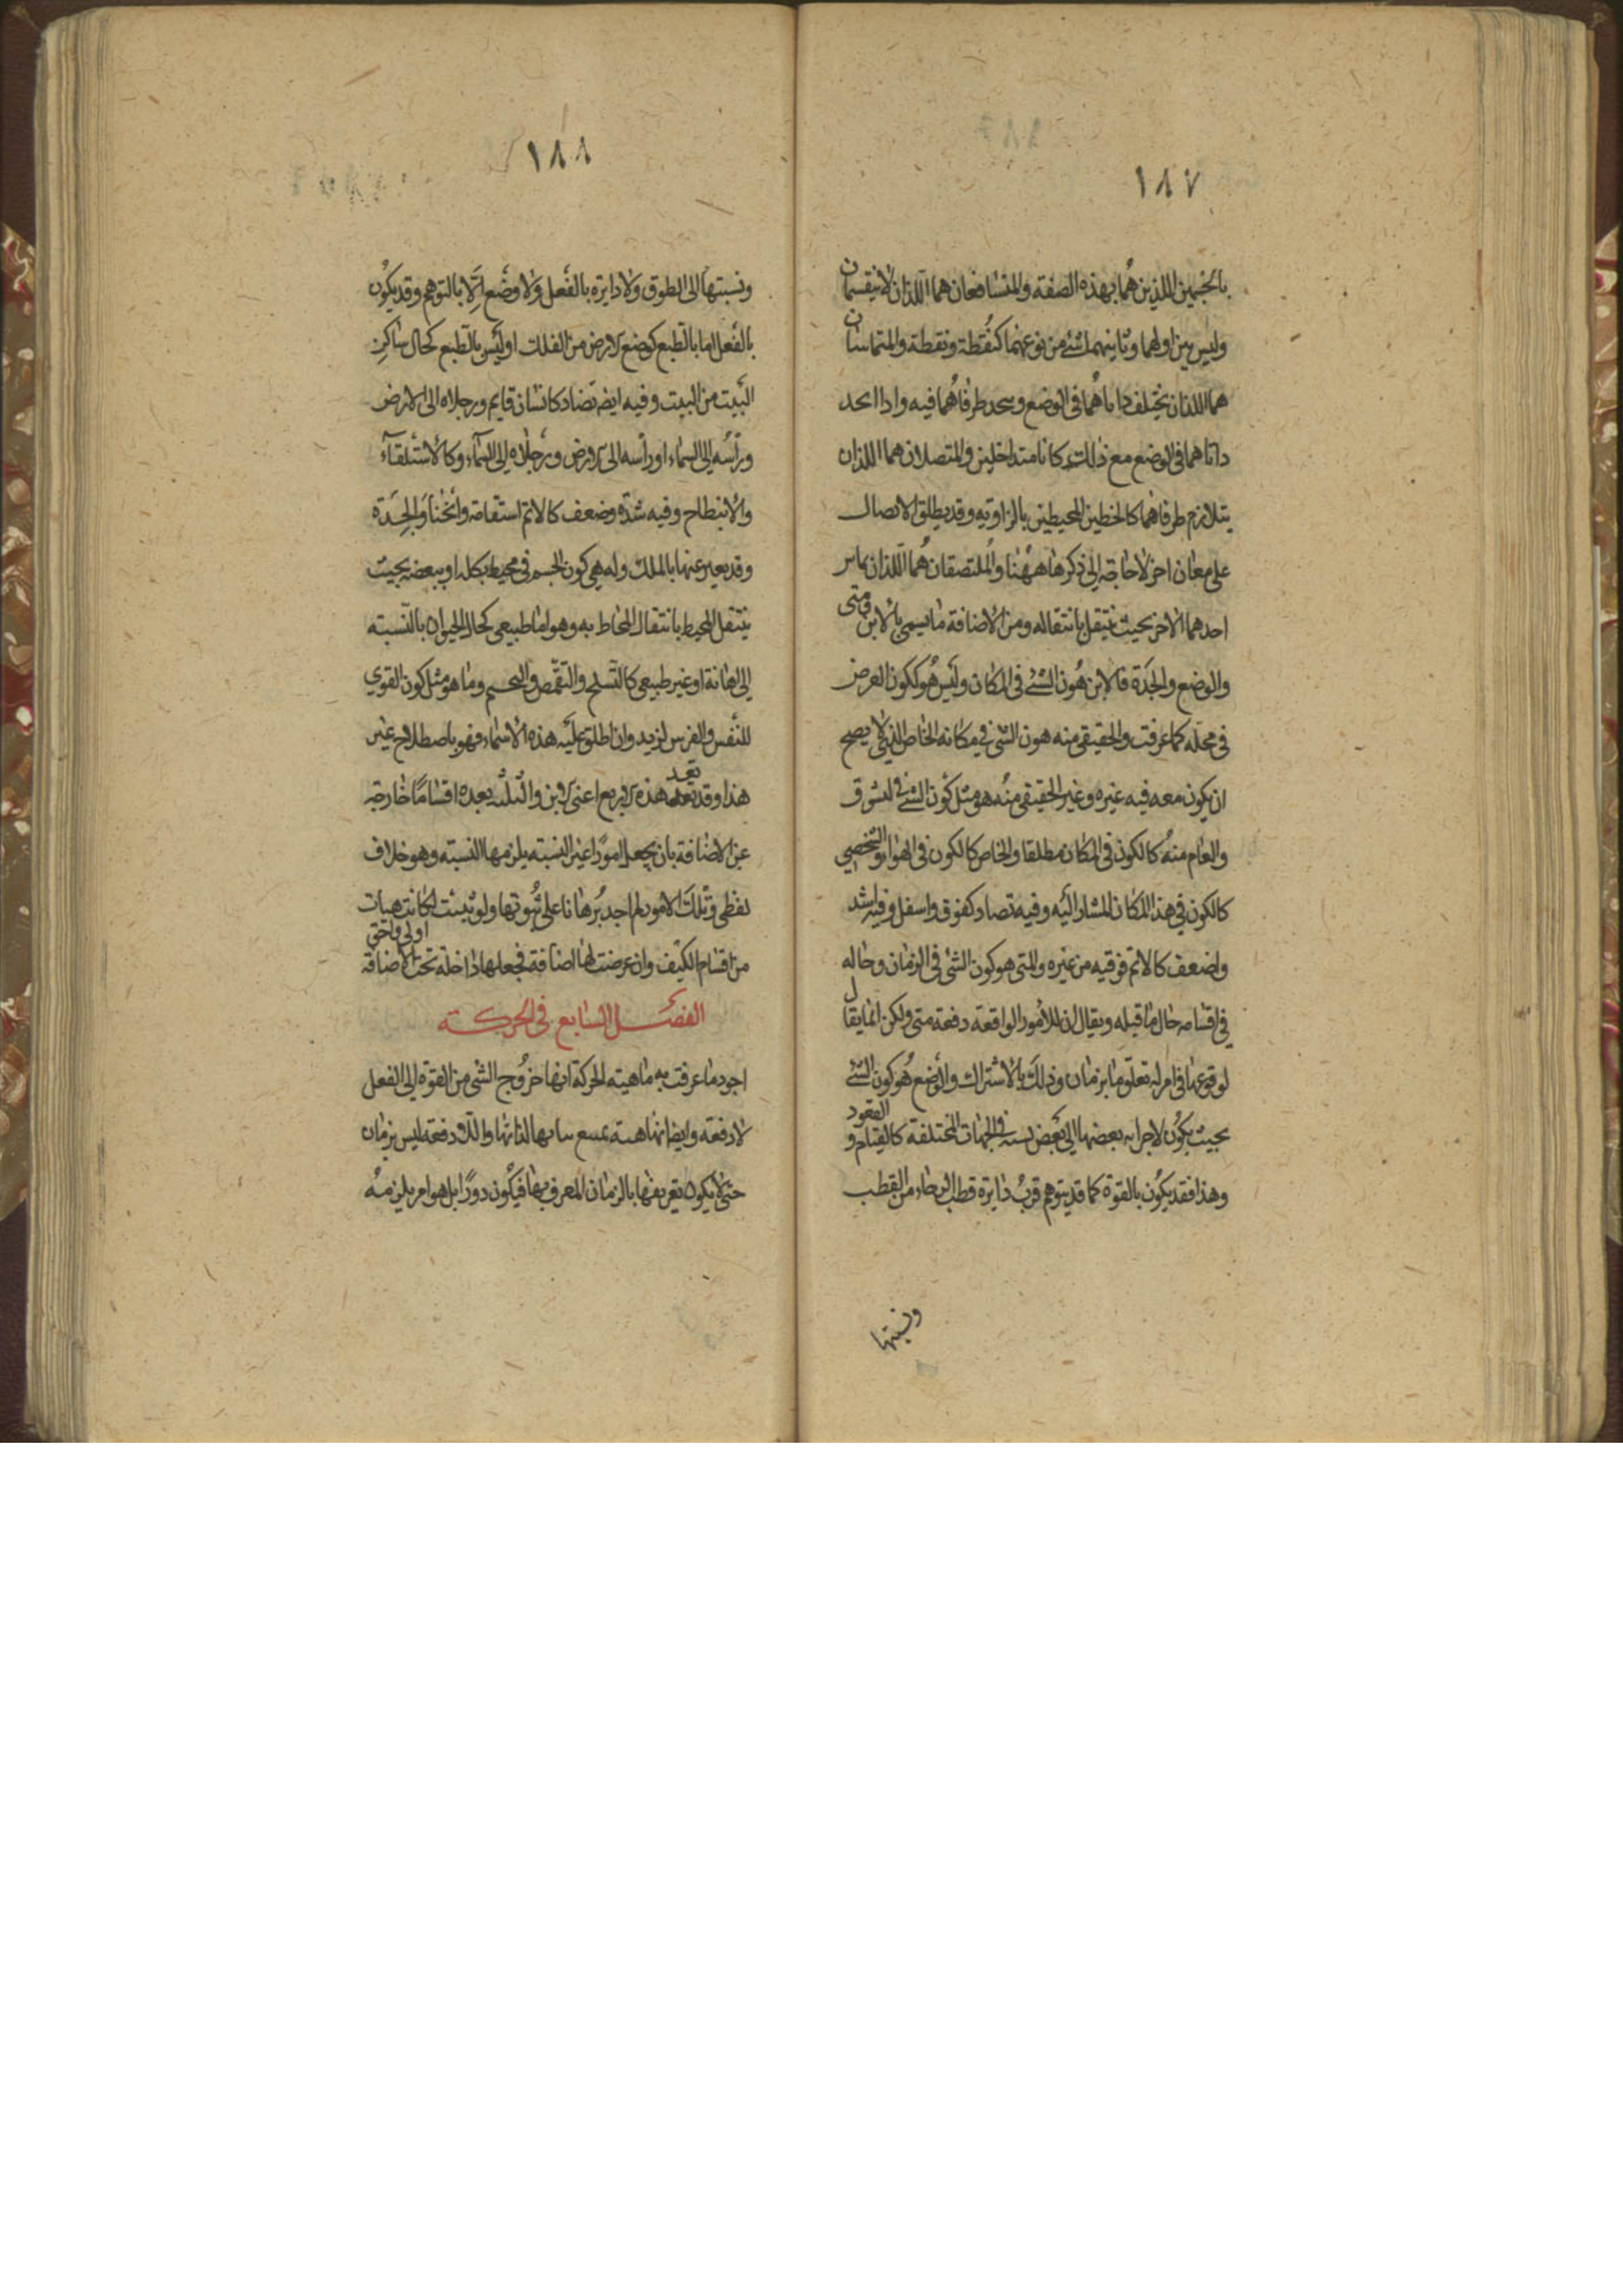 ١٨٧
بالجسمين اللذين هما بهذه الصفة والمتشافعان هما اللذان لا ينقسمان
وليس بين اولهما وثانيهما شئ من نوعهما كنقطة ونقطة والمتماسان
هما اللذان يختلف ذاتاهما فى الوضع ويتحد طرفاهما فيه واذا اتحد
ذاتاهما فى الوضع مع ذلك كانا متداخلين والمتصلان هما اللذان
يتلازم طرفاهما كالخطين المحيطين بالزاوية وقد يطلق الاتصال
على معان اخر لا حاجة الى ذكرها ههنا والملتصقان هما اللذان يماس
احدهما الاخر بحيث ينتقل بانتقاله ومن الاضافة ما يسمى بالاين ومتى
والوضع والجدة فالاين هو كون الشئ فى المكان وليس هو ككون العرض
فى محله كما عرفت والحقيقى منه هو كون الشئ فى مكانه الخاص الذى لا يصح
ان يكون معه فيه غيره وغير الحقيقى منه هو مثل كون الشئ فى السوق
والعام منه كالكون فى المكان مطلقا والخاص كالكون فى الهواء والشخصى
كالكون فى هذا المكان المشار اليه وفيه تضاد كفوق واسفل وفيه اشد
واضعف كالاتم فوقية من غيره والمتى هو كون الشئ فى الزمان وحاله
فى اقسامه حال ما قبله ويقال ان للامور الواقعة دفعة متى ولكن انما يقال
لوقوعها فى امر له تعلق ما بزمان وذلك بالاشتراك والوضع هو كون الشئ
بحيث يكون لاجزائه بعضها الى بعض نسبة فى الجهات المختلفة كالقيام والقعود
وهذا فقد يكون بالقوة كما قد يتوهم قرب دائرة قطب الرحاء من القطب
ونسبتها
١٨٨
ونسبتها الى الطوق ولا دايرة بالفعل ولا وضع الا بالتوهم وقد يكون
بالفعل اما بالطبع كوضع الارض من الفلك او ليس بالطبع كحال ساكن
البيت من البيت وفيه ايضا تضاد كانسان قايم ورجلاه الى الارض
وراسه الى السماء او راسه الى الارض ورجلاه الى السماء وكالاستلقاء
والانبطاح وفيه شدة وضعف كالاتم استقامة وانحناء والجدة
وقد يعبر عنها بالملك وله هى كون الجسم فى محيط بكله او ببعضه بحيث
ينتقل المحيط بانتقال المحاط به وهو اما طبيعى كحال الحيوان بالنسبة
الى اهابه او غير طبيعى كالتسلح والتقمص والتختم وما هو مثل كون القوى
للنفس والفرس لزيد وان اطلق عليه هذه الاسماء فهو باصطلاح غير
هذا وقد تعد هذه الاربع اعنى الاين والثلثة بعده اقساما خارجة
عن الاضافة بان يجعل امورا غير النسبة يلزمها النسبة وهو خلاف
لفظى وتلك الامور لم اجد برهانا على ثبوتها ولو ثبتت لكانت هيات
من اقسام الكيف وان عرضت لها اضافة فجعلها داخلة تحت الاضافة اولى واحق
الفصل السابع فى الحركة
اجود ما عرفت به ماهية الحركة انها خروج الشى من القوة الى الفعل
لا دفعة وايضا انها هيئة يمتنع ثباتها لذاتها واللا دفعة ليس بزمان
حتى لا يكون تعريفها بالزمان المعرف بها فيكون دورا بل هو امر يلزمه